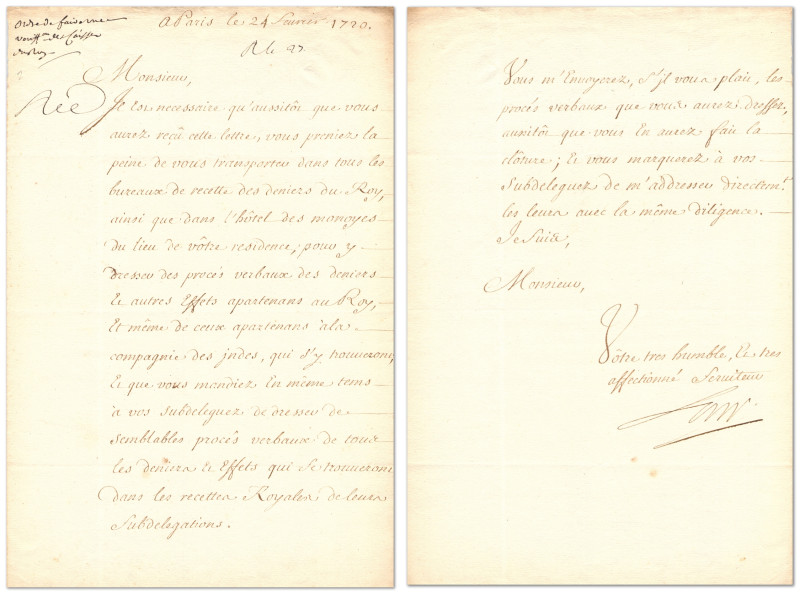 Ordre de faire une
de Caisse
du Roy
A Paris le 24 fevrier 1720.
R le 27
Monsieur,
Il est necessaire qu'aussitôt que vous
aurez reçû cette lettre, vous preniez la
peine de vous transporter dans tous les
bureaux de recette des deniers du Roy,
ainsi que dans l'hôtel des monoyes
du lieu de vôtre residence, pour y
dresser des procés verbaux des deniers
Et autres Effets apartenans au Roy,
Et même de ceux apartenans à la
compagnie des jndes, qui s'y trouveront;
Et que vous mandiez En même tems
à vos subdeleguez de dresser de
semblables procés verbaux de tous
les deniers & Effets qui se trouveront
dans les recettes Royales de leurs
Subdelegations.
Vous m'Envoyerez, s'jl vous plait, les
procés verbaux que vous aurez dressez,
aussitôt que vous En aurez fait la
clôture; Et vous marquerez à vos
Subdeleguez de m'addresser directemt.
les leurs avec la même diligence.
Je suis,
Monsieur,
Vôtre tres humble, Et tres
affectionné Serviteur
Law